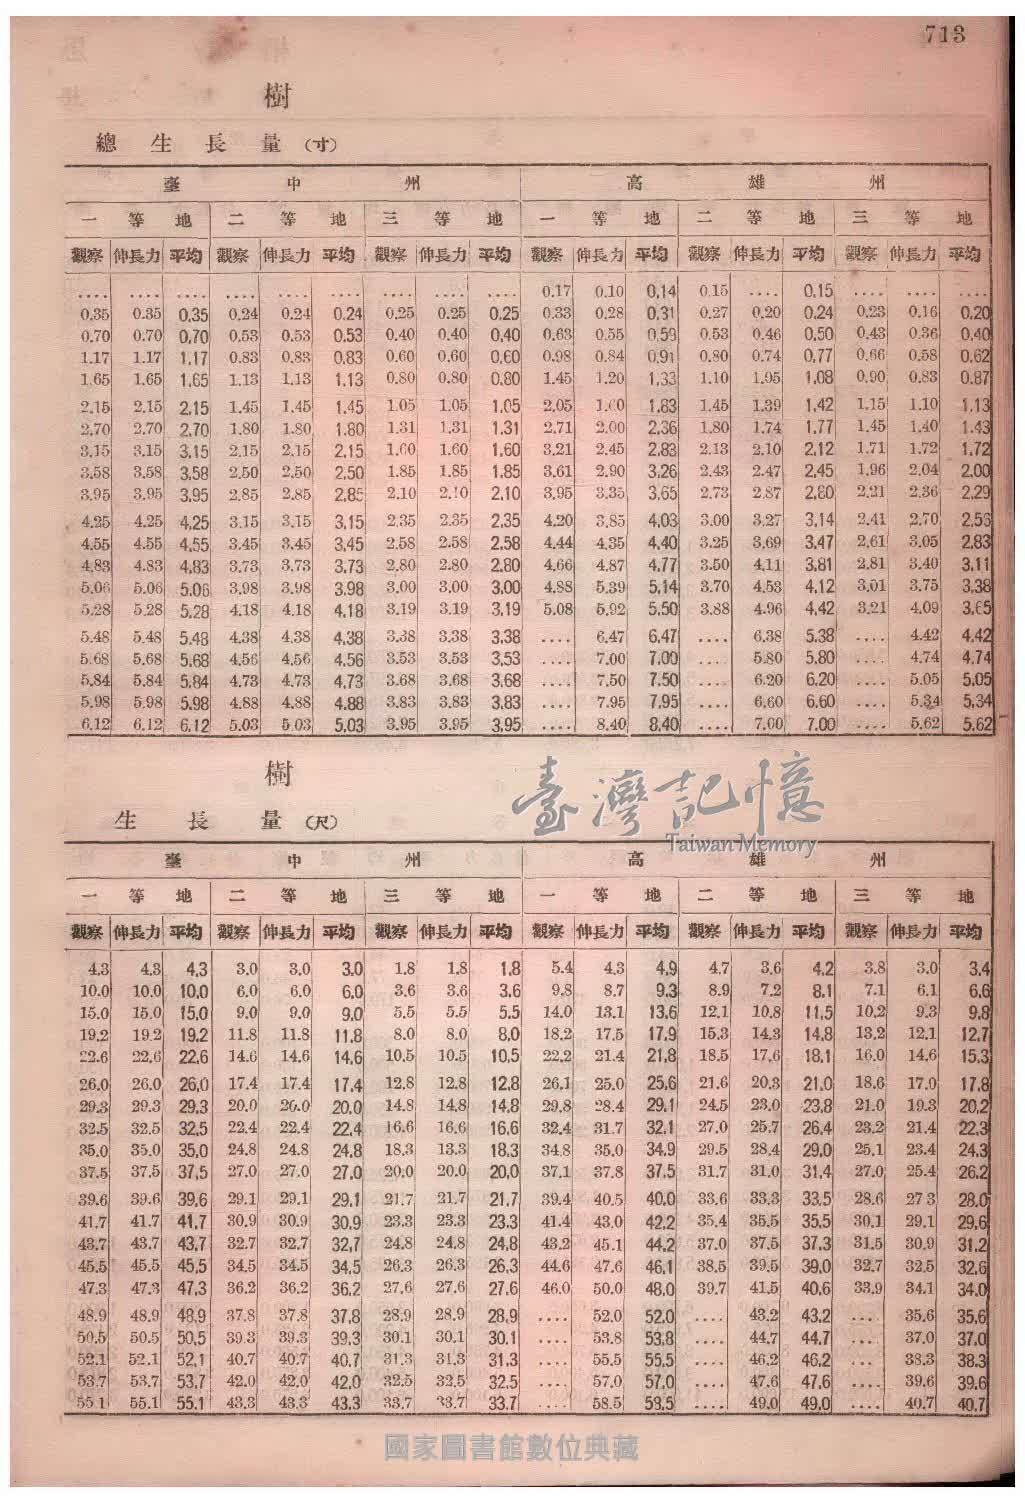 713
樹
總生長量(寸)
臺中州 高雄州
一等地 二等地 三等地 一等地 二等地 三等地
觀察 伸長力 平均 觀察 伸長力 平均 觀察 伸長力 平均 觀察 伸長力 平均 觀察 伸長力 平均 觀察 伸長力 平均
.... .... .... .... .... .... .... .... .... 0.17 0.10 0.14 0.15 .... 0.15 .... .... ....
0.35 0.35 0.35 0.24 0.24 0.24 0.25 0.25 0.25 0.33 0.28 0.31 0.27 0.20 0.24 0.23 0.16 0.20
0.70 0.70 0.70 0.53 0.53 0.53 0.40 0.40 0.40 0.63 0.55 0.59 0.53 0.46 0.50 0.43 0.36 0.40
1.17 1.17 1.17 0.83 0.83 0.83 0.60 0.60 0.60 0.98 0.84 0.91 0.80 0.74 0.77 0.66 0.58 0.62
1.65 1.65 1.65 1.13 1.13 1.13 0.80 0.80 0.80 1.45 1.20 1.33 1.10 1.05 1.08 0.90 0.83 0.87
2.15 2.15 2.15 1.45 1.45 1.45 1.05 1.05 1.05 2.05 1.60 1.83 1.45 1.39 1.42 1.15 1.10 1.13
2.70 2.70 2.70 1.80 1.80 1.80 1.31 1.31 1.31 2.71 2.00 2.36 1.80 1.74 1.77 1.45 1.40 1.43
3.15 3.15 3.15 2.15 2.15 2.15 1.60 1.60 1.60 3.21 2.45 2.83 2.13 2.10 2.12 1.71 1.72 1.72
3.58 3.58 3.58 2.50 2.50 2.50 1.85 1.85 1.85 3.61 2.90 3.26 2.43 2.47 2.45 1.96 2.04 2.00
3.95 3.95 3.95 2.85 2.85 2.85 2.10 2.10 2.10 3.95 3.35 3.65 2.73 2.87 2.80 2.21 2.36 2.29
4.25 4.25 4.25 3.15 3.15 3.15 2.35 2.35 2.35 4.20 3.85 4.03 3.00 3.27 3.14 2.41 2.70 2.56
4.55 4.55 4.55 3.45 3.45 3.45 2.58 2.58 2.58 4.44 4.35 4.40 3.25 3.69 3.47 2.61 3.05 2.83
4.83 4.83 4.83 3.73 3.73 3.73 2.80 2.80 2.80 4.66 4.87 4.77 3.50 4.11 3.81 2.81 3.40 3.11
5.06 5.06 5.06 3.98 3.98 3.98 3.00 3.00 3.00 4.88 5.39 5.14 3.70 4.53 4.12 3.01 3.75 3.38
5.28 5.28 5.28 4.18 4.18 4.18 3.19 3.19 3.19 5.08 5.92 5.50 3.88 4.96 4.42 3.21 4.09 3.65
5.48 5.48 5.48 4.38 4.38 4.38 3.38 3.38 3.38 .... 6.47 6.47 .... 5.38 .... 4.42 4.42
5.68 5.68 5.68 4.56 4.56 4.56 3.53 3.53 3.53 .... 7.00 7.00 .... 5.80 5.80 .... 4.74 4.74
5.84 5.84 5.84 4.73 4.73 4.73 3.68 3.68 3.68 .... 7.50 7.50 .... 6.20 6.20 .... 5.05 5.05
5.98 5.98 5.98 4.88 4.88 4.88 3.83 3.83 3.83 .... 7.95 7.95 .... 6.60 6.60 .... 5.34 5.34
6.12 6.12 6.12 5.03 5.03 5.03 3.95 3.95 3.95 .... 8.40 8.40 .... 7.00 7.00 .... 5.62 5.62
樹
臺灣記憶
Taiwan Memory
生長量(尺)
臺中州 高雄州
一等地 二等地 三等地 一等地 二等地 三等地
觀察 伸長力 平均 觀察 伸長力 平均 觀察 伸長力 平均 觀察 伸長力 平均 觀察 伸長力 平均 觀察 伸長力 平均
4.3 4.3 4.3 3.0 3.0 3.0 1.8 1.8 1.8 5.4 4.3 4.9 4.7 3.6 4.2 3.8 3.0 3.4
10.0 10.0 10.0 6.0 6.0 6.0 3.6 3.6 3.6 9.8 8.7 9.3 8.9 7.2 8.1 7.1 6.1 6.6
15.0 15.0 15.0 9.0 9.0 9.0 5.5 5.5 5.5 14.0 13.1 13.6 12.1 10.8 11.5 10.2 9.3 9.8
19.2 19.2 19.2 11.8 11.8 11.8 8.0 8.0 8.0 18.2 17.5 17.9 15.3 14.3 14.8 13.2 12.1 12.7
22.6 22.6 22.6 14.6 14.6 14.6 10.5 10.5 10.5 22.2 21.4 21.8 18.5 17.6 18.1 16.0 14.6 15.3
26.0 26.0 26.0 17.4 17.4 17.4 12.8 12.8 12.8 26.1 25.0 25.6 21.6 20.3 21.0 18.6 17.0 17.8
29.3 29.3 29.3 20.0 20.0 20.0 14.8 14.8 14.8 29.8 28.4 29.1 24.5 23.0 23.8 21.0 19.3 20.2
32.5 32.5 32.5 22.4 22.4 22.4 16.6 16.6 16.6 32.4 31.7 32.1 27.0 25.7 26.4 23.2 21.4 22.3
35.0 35.0 35.0 24.8 24.8 24.8 18.3 13.3 18.3 34.8 35.0 34.9 29.5 28.4 29.0 25.1 23.4 24.3
37.5 37.5 37.5 27.0 27.0 27.0 20.0 20.0 20.0 37.1 37.8 37.5 31.7 31.0 31.4 27.0 25.4 26.2
39.6 39.6 39.6 29.1 29.1 29.1 21.7 21.7 21.7 39.4 40.5 40.0 33.6 33.3 33.5 28.6 27.3 28.0
41.7 41.7 41.7 30.9 30.9 30.9 23.3 23.3 23.3 41.4 43.0 42.2 35.4 35.5 35.5 30.1 29.1 29.6
43.7 43.7 43.7 32.7 32.7 32.7 24.8 24.8 24.8 43.2 45.1 44.2 37.0 37.5 37.3 31.5 30.9 31.2
45.5 45.5 45.5 34.5 34.5 34.5 26.3 26.3 26.3 44.6 47.6 46.1 38.5 39.5 39.0 32.7 32.5 32.6
47.3 47.3 47.3 36.2 36.2 36.2 27.6 27.6 27.6 46.0 50.0 48.0 39.7 41.5 40.6 33.9 34.1 34.0
48.9 48.9 48.9 37.8 37.8 37.8 28.9 28.9 28.9 .... 52.0 52.0 .... 43.2 43.2 ... 35.6 35.6
50.5 50.5 50.5 39.3 39.3 39.3 30.1 30.1 30.1 .... 53.8 53.8 .... 44.7 44.7 ... 37.0 37.0
52.1 52.1 52.1 40.7 40.7 40.7 31.3 31.3 31.3 .... 55.5 55.5 .... 46.2 46.2 ... 38.3 38.3
53.7 53.7 53.7 42.0 42.0 42.0 32.5 32.5 32.5 .... 57.0 57.0 .... 47.6 47.6 .... 39.6 39.6
55.1 55.1 55.1 43.3 43.3 43.3 33.7 33.7 33.7 .... 58.5 58.5 .... 49.0 49.0 .... 40.7 40.7
國家圖書館數位典藏